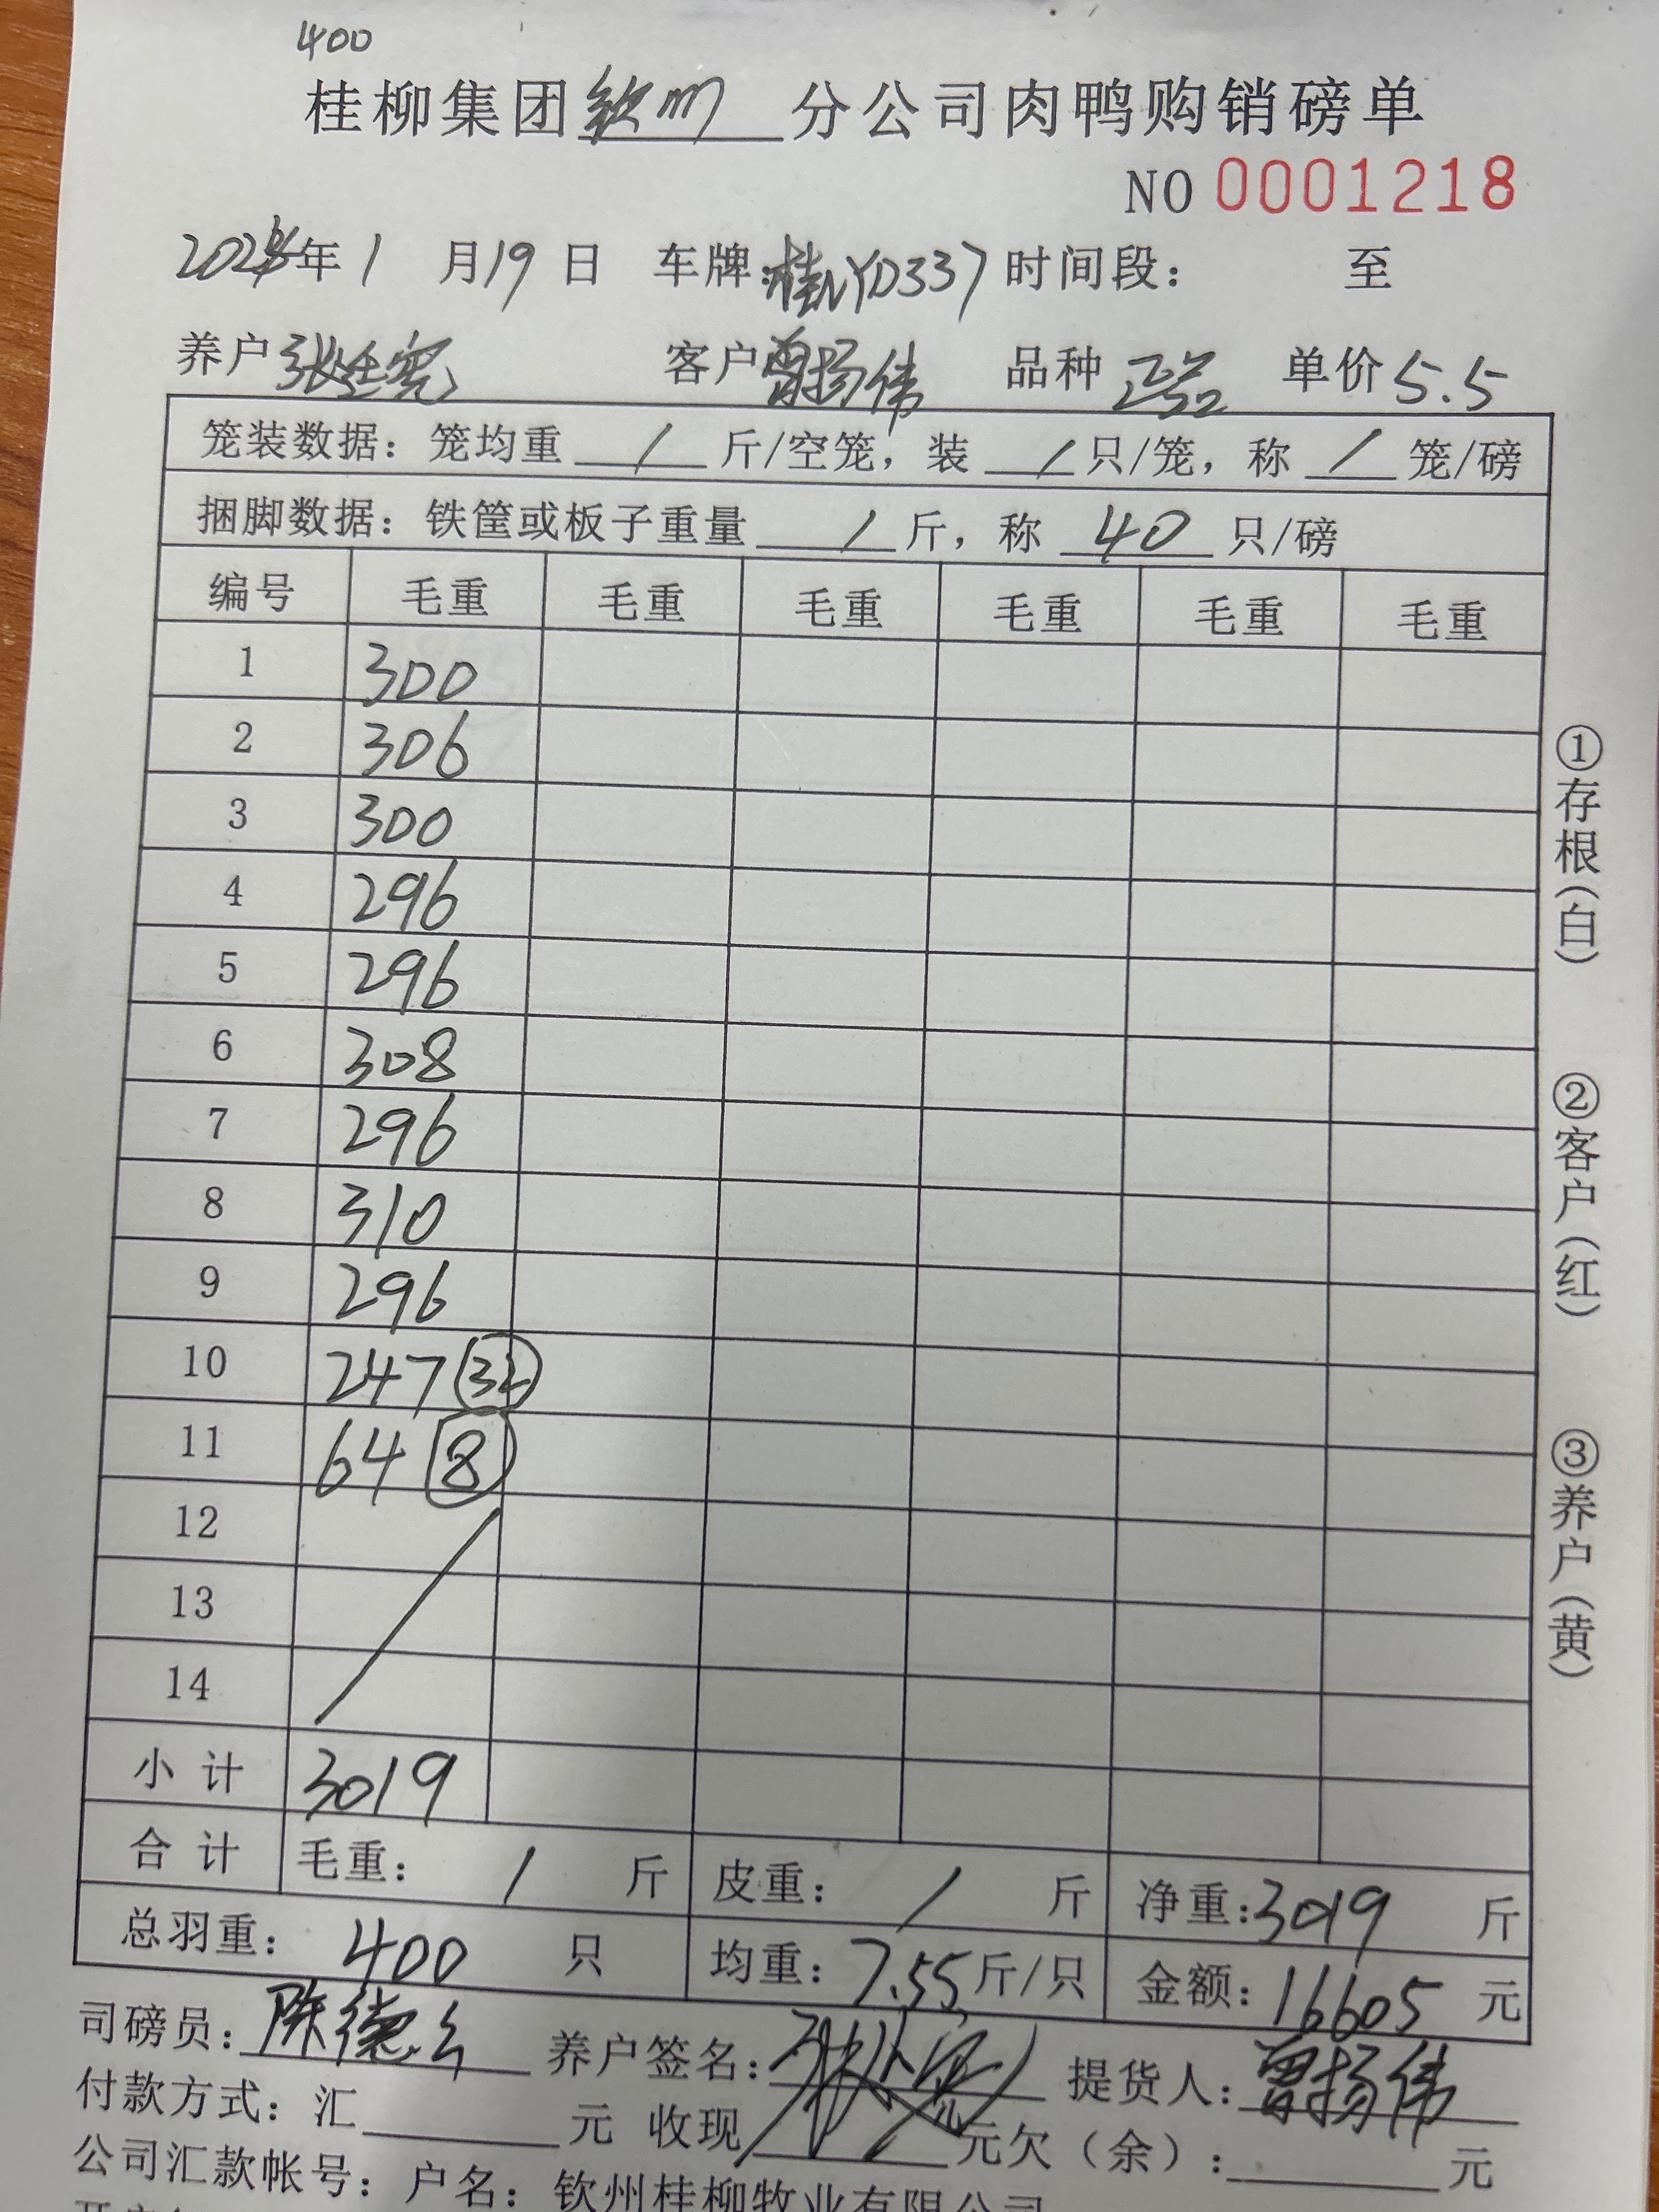 400
桂柳集团钦州分公司肉鸭购销磅单
NO 0001218
2024年1月19日 车牌:桂NYD337 时间段: 至
养户 客户曾扬伟 品种正品 单价5.5
笼装数据: 笼均重 / 斤/空笼, 装 / 只/笼, 称 / 笼/磅
捆脚数据: 铁筐或板子重量 / 斤, 称 40 只/磅
编号 毛重 毛重 毛重 毛重 毛重 毛重
1 300
2 306
3 300
4 296
5 296
6 308
7 296
8 310
9 296
10 247 (32)
11 64 (8)
12
13
14
小计 3019
合计 毛重: / 斤 皮重: / 斤 净重:3019 斤
总羽重: 400 只 均重: 7.55斤/只 金额: 16605 元
司磅员: 陈德 养户签名: 提货人: 曾扬伟
付款方式: 汇 元 收现 元欠(余): 元
公司汇款帐号: 户名: 钦州桂柳牧业有限公司
①存根(白)
②客户(红)
③养户(黄)